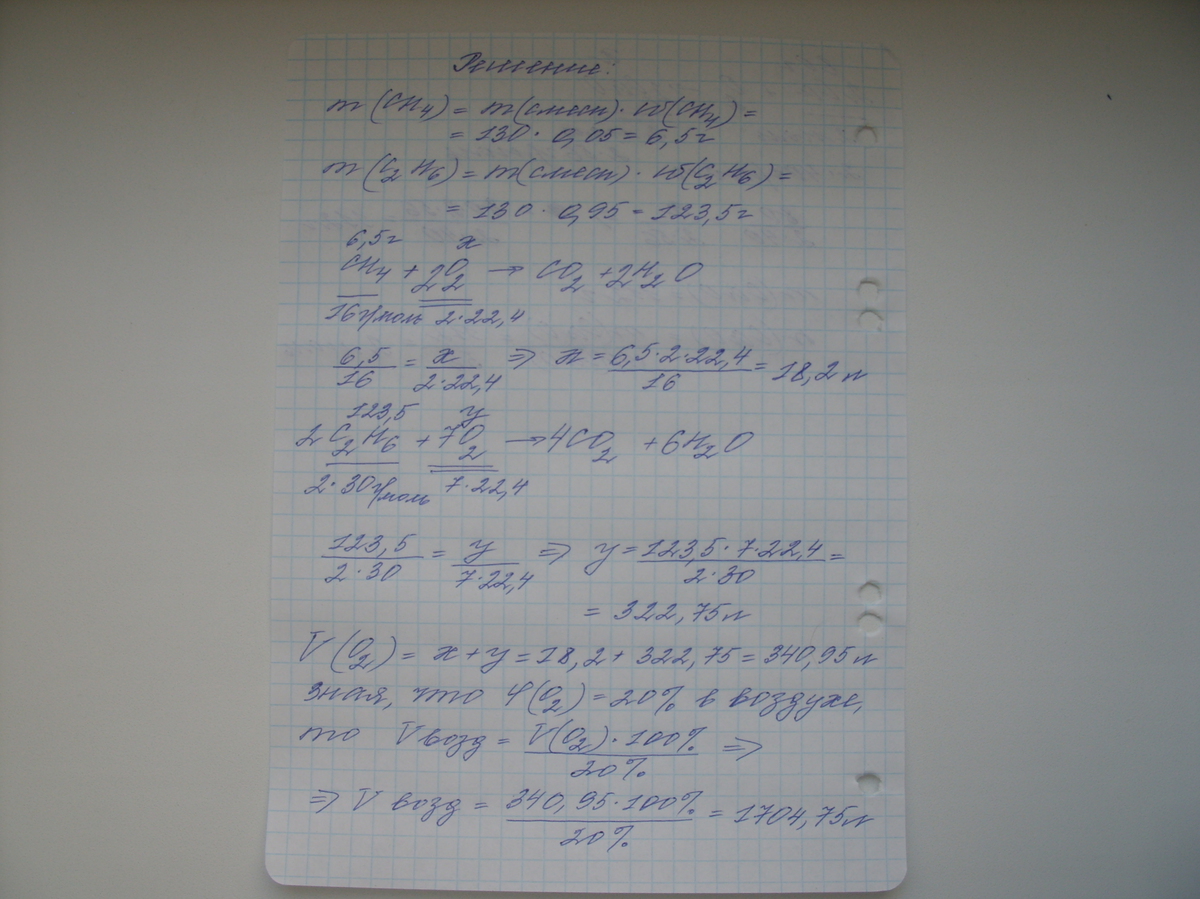 Решение:
m(CH4) = m(смеси)·w(CH4) =
= 130·0,05 = 6,5г
m(C2H6) = m(смеси)·w(C2H6) =
= 130·0,95 = 123,5г
6,5г x
CH4 + 2O2 → CO2 + 2H2O
16г/моль 2·22,4
6,5/16 = x/2·22,4 => x = 6,5·2·22,4/16 = 18,2л
123,5 y
2C2H6 + 7O2 → 4CO2 + 6H2O
2·30г/моль 7·22,4
123,5/2·30 = y/7·22,4 => y = 123,5·7·22,4/2·30 =
= 322,75л
V(O2) = x+y = 18,2 + 322,75 = 340,95л
зная, что φ(O2) = 20% в воздухе,
то Vвозд = V(O2)·100%/20% =>
=> V возд = 340,95·100%/20% = 1704,75л